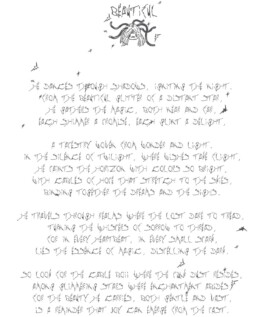 BEAUTIFUL
HE DANCES THROUGH SHADOWS, IGNITING THE NIGHT,
FROM THE BEAUTIFUL GLITTER OF A DISTANT STAR,
HE GATHERS THE MAGIC, BOTH NEAR AND FAR,
EACH SHIMMER A PROMISE, EACH GLINT A DELIGHT.
A TAPESTRY WOVEN FROM WONDER AND LIGHT.
IN THE SILENCE OF TWILIGHT, WHERE WISHES TAKE FLIGHT,
HE PAINTS THE HORIZON WITH COLORS SO BRIGHT,
WITH CANDLES OF HOPE THAT STRETCH TO THE SKIES,
BINDING TOGETHER THE DREAMS AND THE SIGHS.
HE TRAVELS THROUGH REALMS WHERE THE LOST DARE TO TREAD,
TURNING THE WHISPERS OF SORROW TO THREAD,
FOR IN EVERY HEARTBEAT, IN EVERY SMALL
LIES THE ESSENCE OF MAGIC, DISPELLING THE DARK.
SO LOOK FOR THE WHERE THE DUST RESIDES,
AMONG GLIMMERING STARS WHERE ENCHANTMENT ABIDES
FOR THE BEAUTY HE CARRIES, BOTH GENTLE AND
IS A REMINDER THAT JOY CAN EMERGE FROM THE